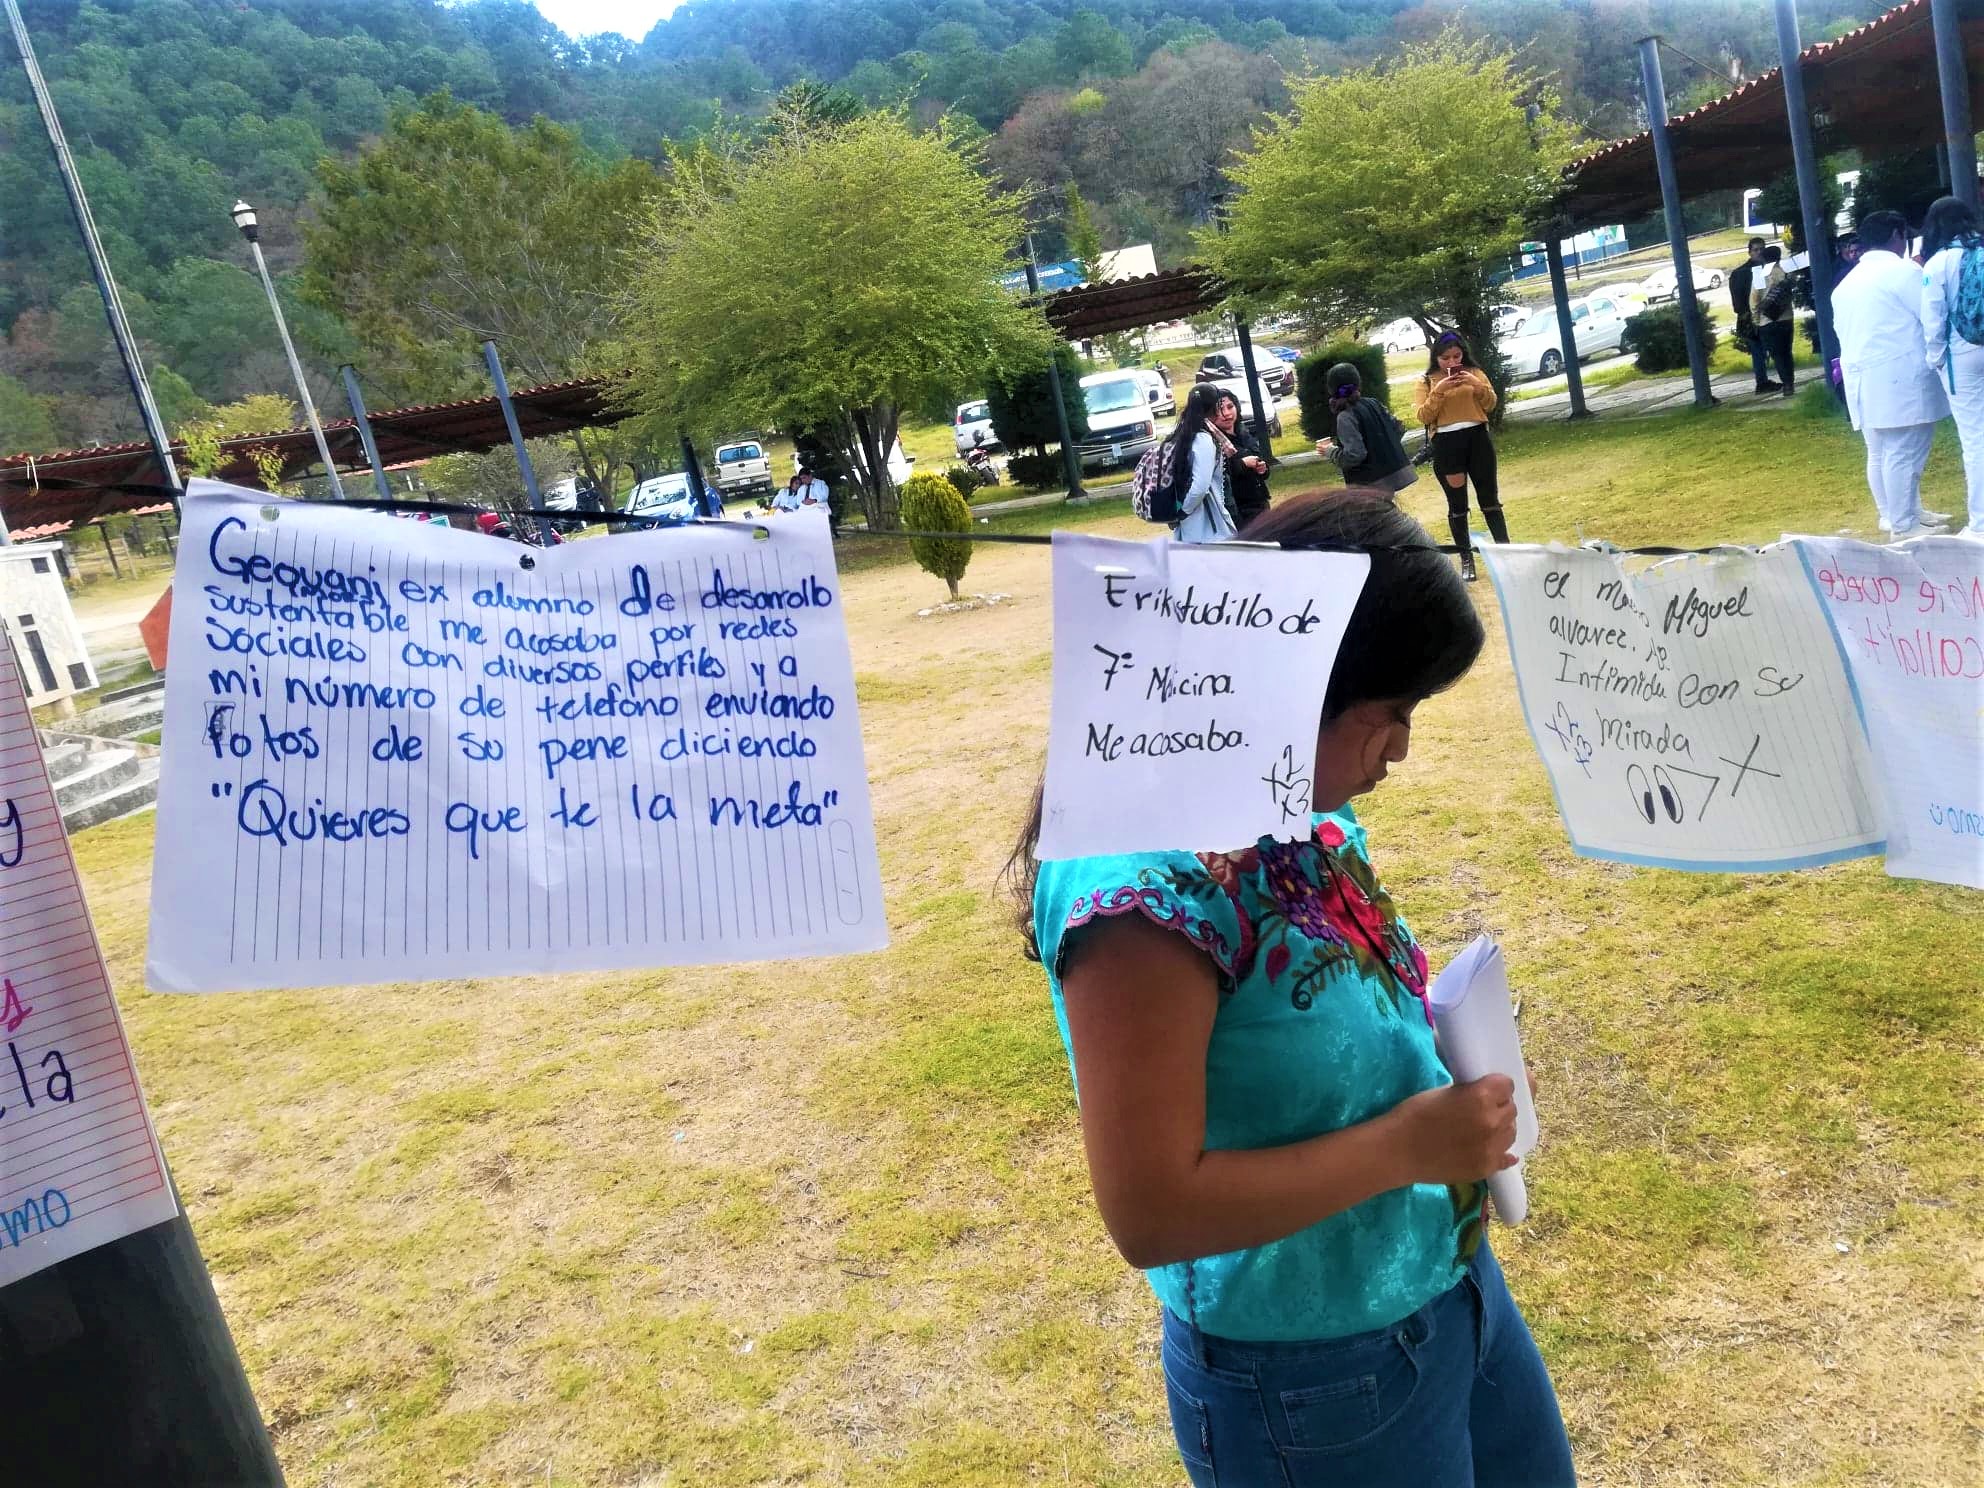 y
la
mo
Gequani ex alumno de desarrollo
sustentable me acosaba por redes
sociales con diversos perfiles y a
mi número de telefono enviando
fotos de su pene diciendo
"Quieres que te la meta"
Erik studillo de
7º Medicina.
Me acosaba.
x2
x3
el Miguel
alvarez.
Intimida con su
Mirada
x2
x3
No te quedes
calla